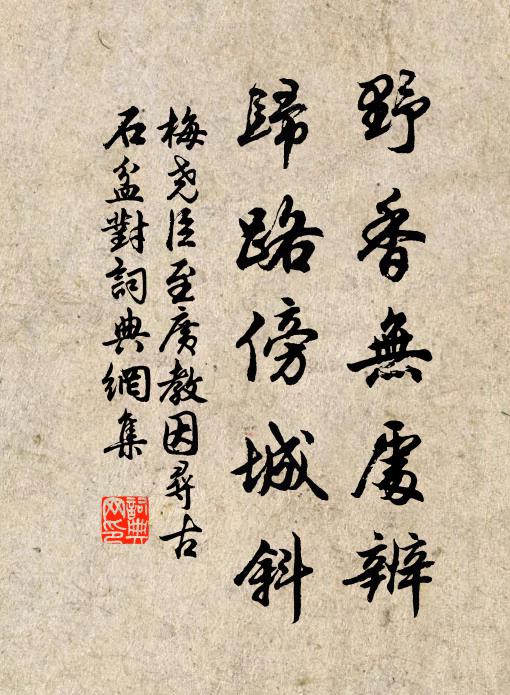 野香無處辨
歸路傍城斜
梅堯臣至廣教因尋古
石盆對詞典網集
詞典網印